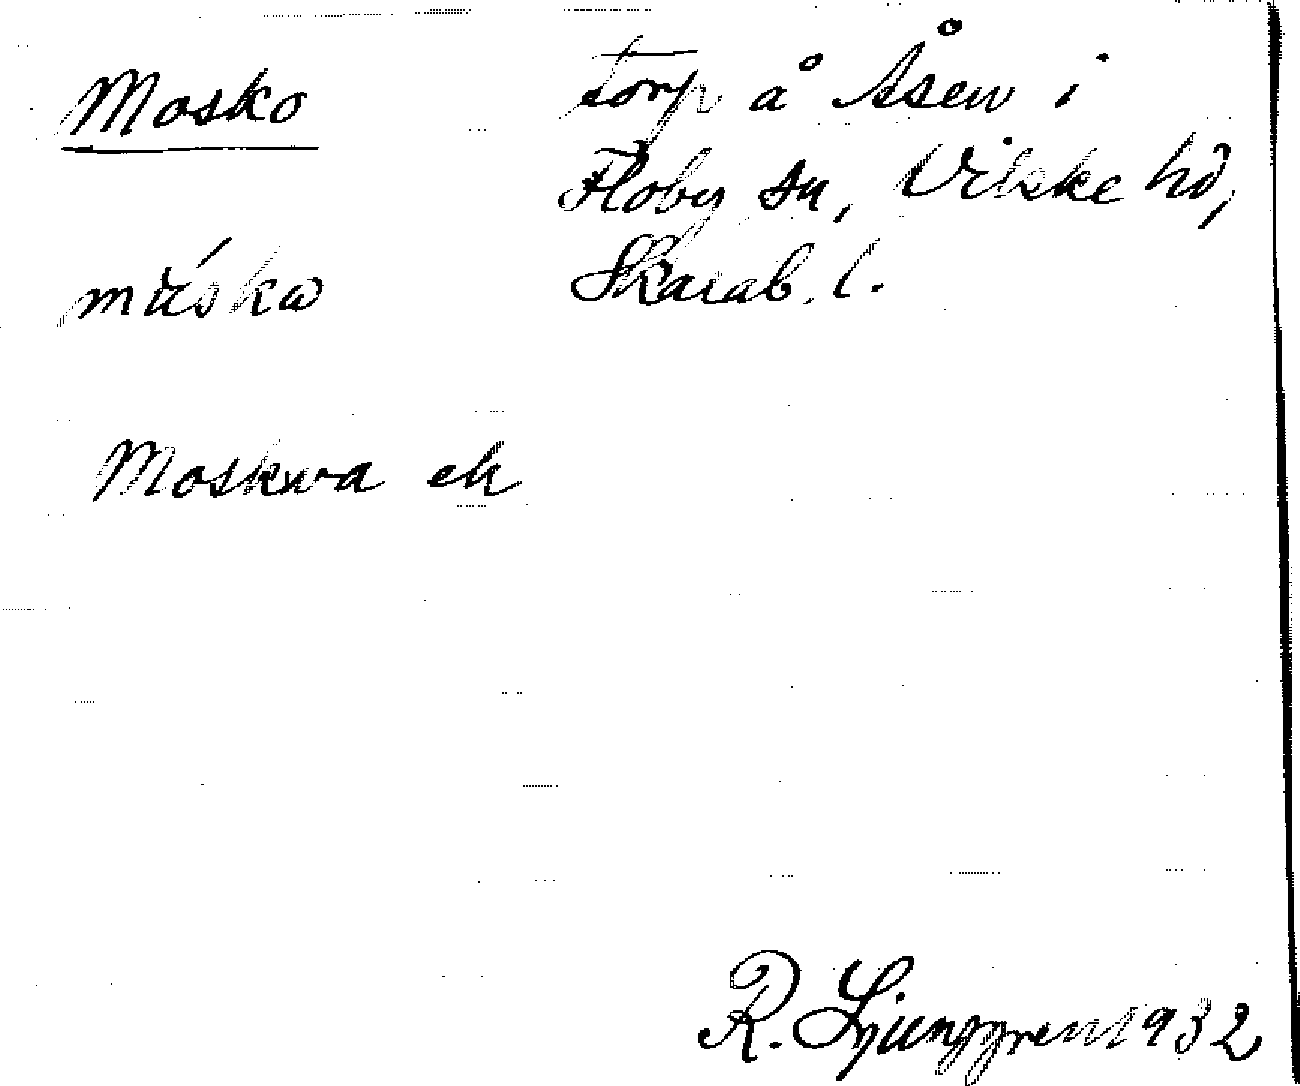 Mosko
torp å Åsen i
Floby sn, Vilske hd,
Skarab. l.
múska
Moskva ek
R. Ljunggren 1932